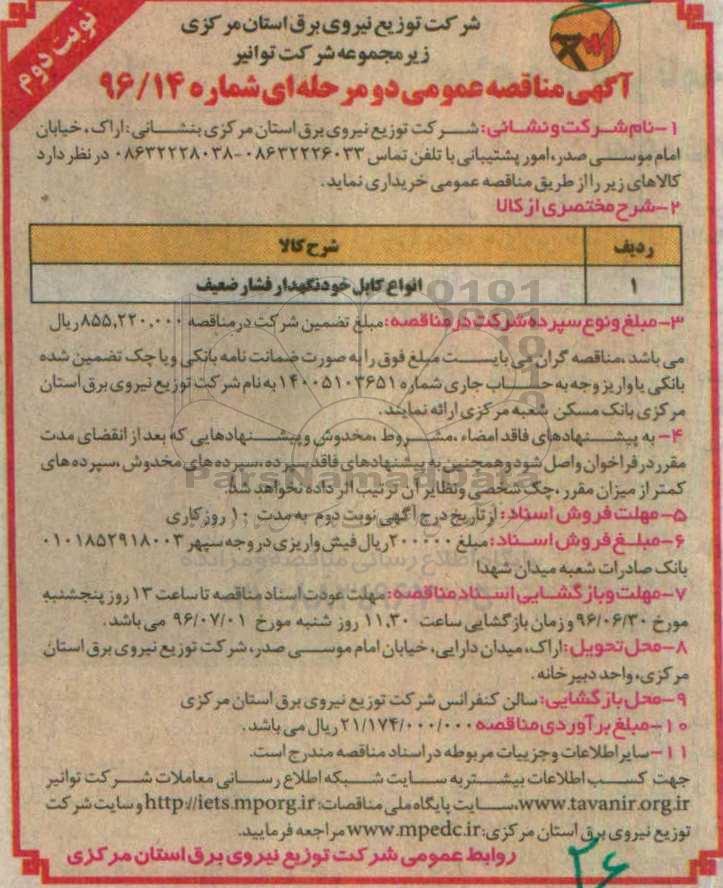 نوبت دوم
شرکت توزیع نیروی برق استان مرکزی
زیرمجموعه شرکت توانیر
آگهی مناقصه عمومی دو مرحله ای شماره ۹۶/۱۴
۱-نام شرکت و نشانی: شرکت توزیع نیروی برق استان مرکزی بنشانی: اراک، خیابان
امام موسی صدر، امور پشتیبانی با تلفن تماس ۰۸۶۳۲۲۲۶۰۳۳-۰۸۶۳۲۲۲۸۰۳۸ در نظر دارد
کالاهای زیر را از طریق مناقصه عمومی خریداری نماید.
۲-شرح مختصری از کالا
ردیف شرح کالا
۱ انواع کابل خودنگهدار فشار ضعیف
۳-مبلغ و نوع سپرده شرکت در مناقصه: مبلغ تضمین شرکت در مناقصه ۸۵۵,۲۲۰,۰۰۰ ریال
می باشد، مناقصه گران می بایست مبلغ فوق را به صورت ضمانت نامه بانکی و یا چک تضمین شده
بانکی یا واریز وجه به حساب جاری شماره ۱۴۰۰۵۱۰۳۶۵۱ به نام شرکت توزیع نیروی برق استان
مرکزی بانک مسکن شعبه مرکزی ارائه نمایند.
۴- به پیشنهادهای فاقد امضاء، مشروط، مخدوش و پیشنهادهایی که بعد از انقضای مدت
مقرر در فراخوان واصل شود و همچنین به پیشنهادهای فاقد سپرده، سپرده های مخدوش، سپرده های
کمتر از میزان مقرر، چک شخصی و نظایر آن ترتیب اثر داده نخواهد شد.
۵-مهلت فروش اسناد: از تاریخ درج آگهی نوبت دوم به مدت ۱۰ روز کاری
۶-مبلغ فروش اسناد: مبلغ ۲۰۰۰۰۰ ریال فیش واریزی در وجه سپهر ۰۱۰۱۸۵۲۹۱۸۰۰۳
بانک صادرات شعبه میدان شهدا
۷-مهلت و بازگشایی اسناد مناقصه: مهلت عودت اسناد مناقصه تا ساعت ۱۳ روز پنجشنبه
مورخ ۹۶/۰۶/۳۰ و زمان بازگشایی ساعت ۱۱,۳۰ روز شنبه مورخ ۹۶/۰۷/۰۱ می باشد.
۸-محل تحویل: اراک، میدان دارایی، خیابان امام موسی صدر، شرکت توزیع نیروی برق استان
مرکزی، واحد دبیرخانه.
۹-محل بازگشایی: سالن کنفرانس شرکت توزیع نیروی برق استان مرکزی
۱۰-مبلغ برآوردی مناقصه ۲۱/۱۷۴/۰۰۰/۰۰۰ ریال می باشد.
۱۱-سایر اطلاعات و جزییات مربوطه در اسناد مناقصه مندرج است.
جهت کسب اطلاعات بیشتر به سایت شبکه اطلاع رسانی معاملات شرکت توانیر
www.tavanir.org.ir، سایت پایگاه ملی مناقصات: http://iets.mporg.ir و سایت شرکت
توزیع نیروی برق استان مرکزی: www.mpedc.ir مراجعه فرمایید.
روابط عمومی شرکت توزیع نیروی برق استان مرکزی
۲۶
ParsNamadData